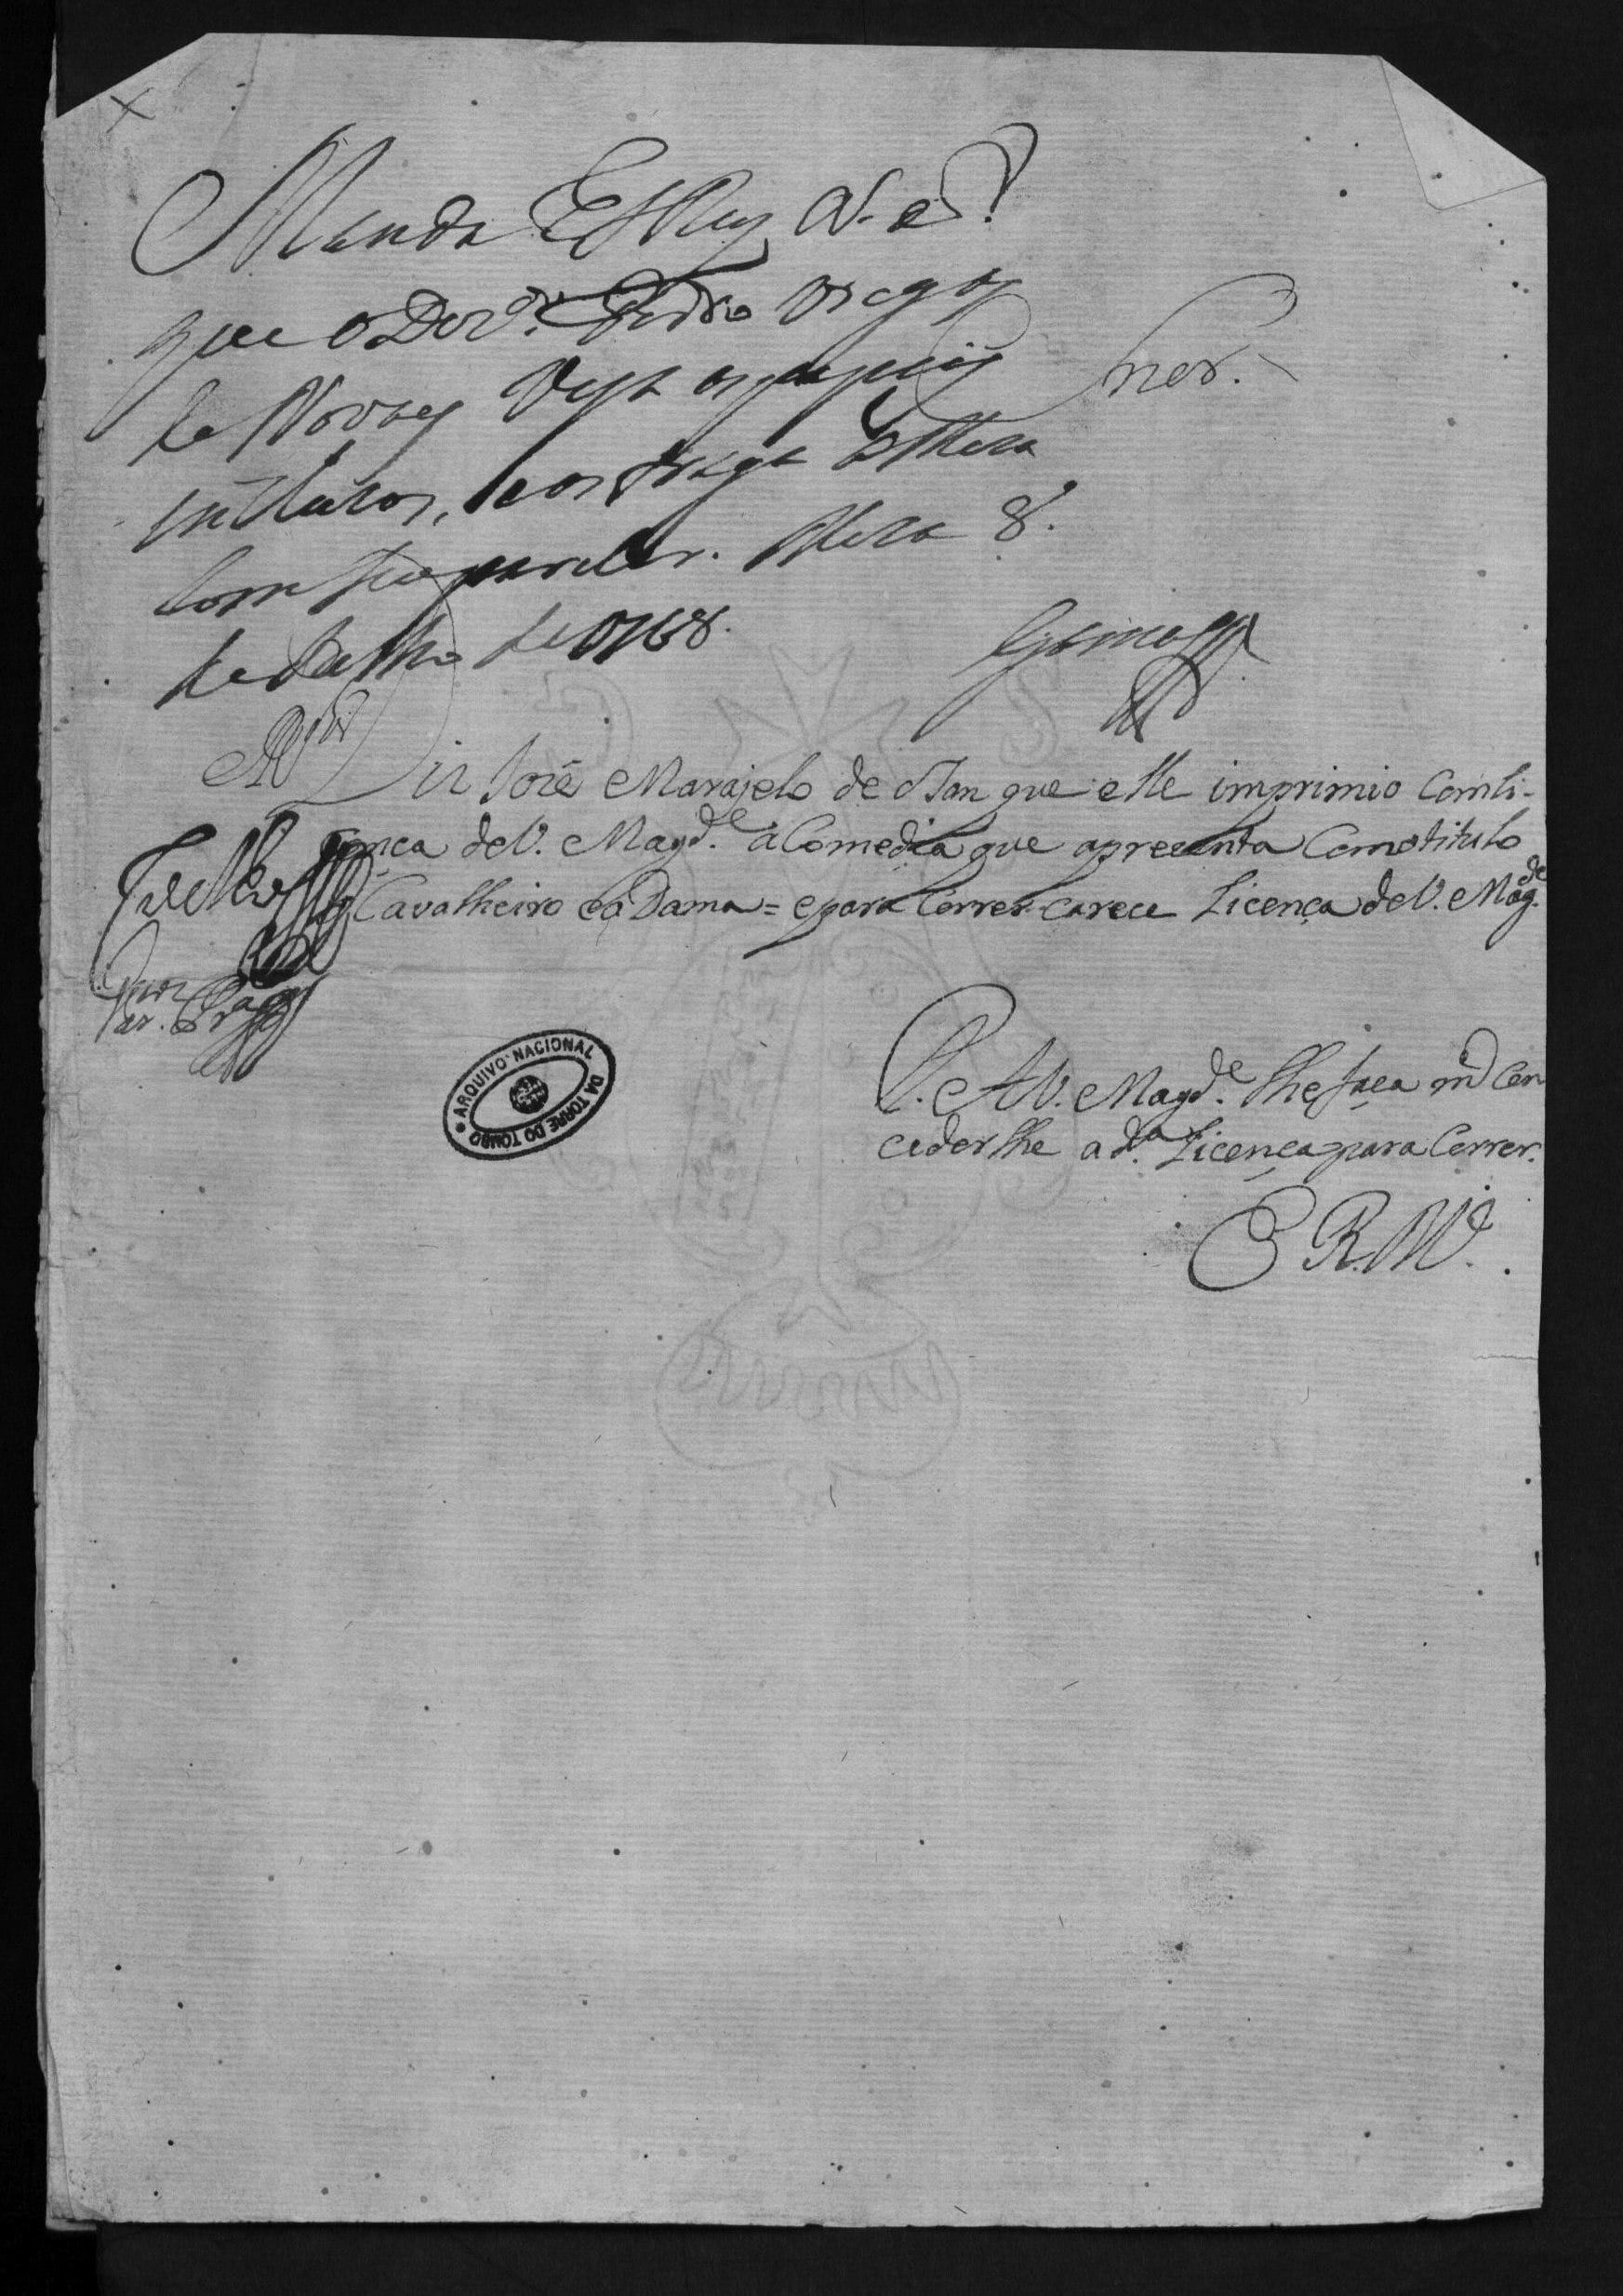 Manda ElRey N. S.
que o Dez.or Pedro Viegas
de Novaes Veja os papeis
incluzos, e os traga á Meza
com seu parecer. Meza 8.
de Julho de 1768.
Diz José Marajelo de Osan que elle imprimio com li-
cença de V. Magd.e a Comedia que aprezenta Com o titulo
Cavalheiro e a Dama = e para Correr carece Licença de V. Mag.de
P. A V. Magd.e lhe faça m.ce Con
ceder lhe a d.a Licença para Correr.
E R. M.ce
ARQUIVO NACIONAL DA TORRE DO TOMBO